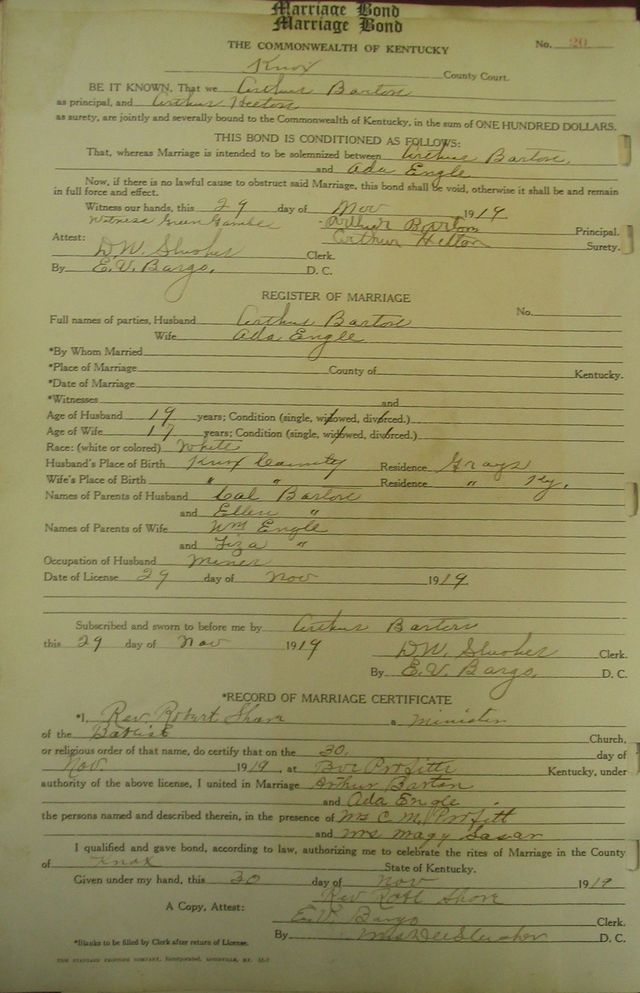 Marriage Bond
Marriage Bond
THE COMMONWEALTH OF KENTUCKY No. 20
Knox County Court.
BE IT KNOWN, That we Arthur Barton
as principal, and Arthur Helton
as surety, are jointly and severally bound to the Commonwealth of Kentucky, in the sum of ONE HUNDRED DOLLARS.
THIS BOND IS CONDITIONED AS FOLLOWS:
That, whereas Marriage is intended to be solemnized between Arthur Barton
and Ada Engle
Now, if there is no lawful cause to obstruct said Marriage, this bond shall be void, otherwise it shall be and remain
in full force and effect.
Witness our hands, this 29 day of Nov 1919
Witness Green Gambel Arthur Barton Principal.
Arthur Helton Surety.
Attest: D.W. Slusher Clerk.
By E.V. Bargo. D. C.
REGISTER OF MARRIAGE
No.
Full names of parties, Husband Arthur Barton
Wife Ada Engle
*By Whom Married
*Place of Marriage County of Kentucky.
*Date of Marriage
*Witnesses and
Age of Husband 19 years; Condition (single, widowed, divorced.)
Age of Wife 17 years; Condition (single, widowed, divorced.)
Race: (white or colored) White
Husband's Place of Birth Knox County Residence Grays
Wife's Place of Birth " " Residence " Ky.
Names of Parents of Husband Cal Barton
and Ellen "
Names of Parents of Wife Wm Engle
and Liza "
Occupation of Husband Miner
Date of License 29 day of Nov 1919
Subscribed and sworn to before me by Arthur Barton
this 29 day of Nov 1919
D.W. Slusher Clerk.
By E.V. Bargo, D. C.
*RECORD OF MARRIAGE CERTIFICATE
*I, Rev. Robert Shore a Minister
of the Baptist Church,
or religious order of that name, do certify that on the 30 day of
Nov 1919, at Kentucky, under
authority of the above license, I united in Marriage Arthur Barton
and Ada Engle
the persons named and described therein, in the presence of Mrs C M Profitt
and Mrs Magy
I qualified and gave bond, according to law, authorizing me to celebrate the rites of Marriage in the County
of Knox State of Kentucky.
Given under my hand, this 30 day of Nov 1919
Rev Robt Shore
A Copy, Attest: E.V. Bargo Clerk.
By Mrs Dee Slusher D. C.
*Blanks to be filled by Clerk after return of License.